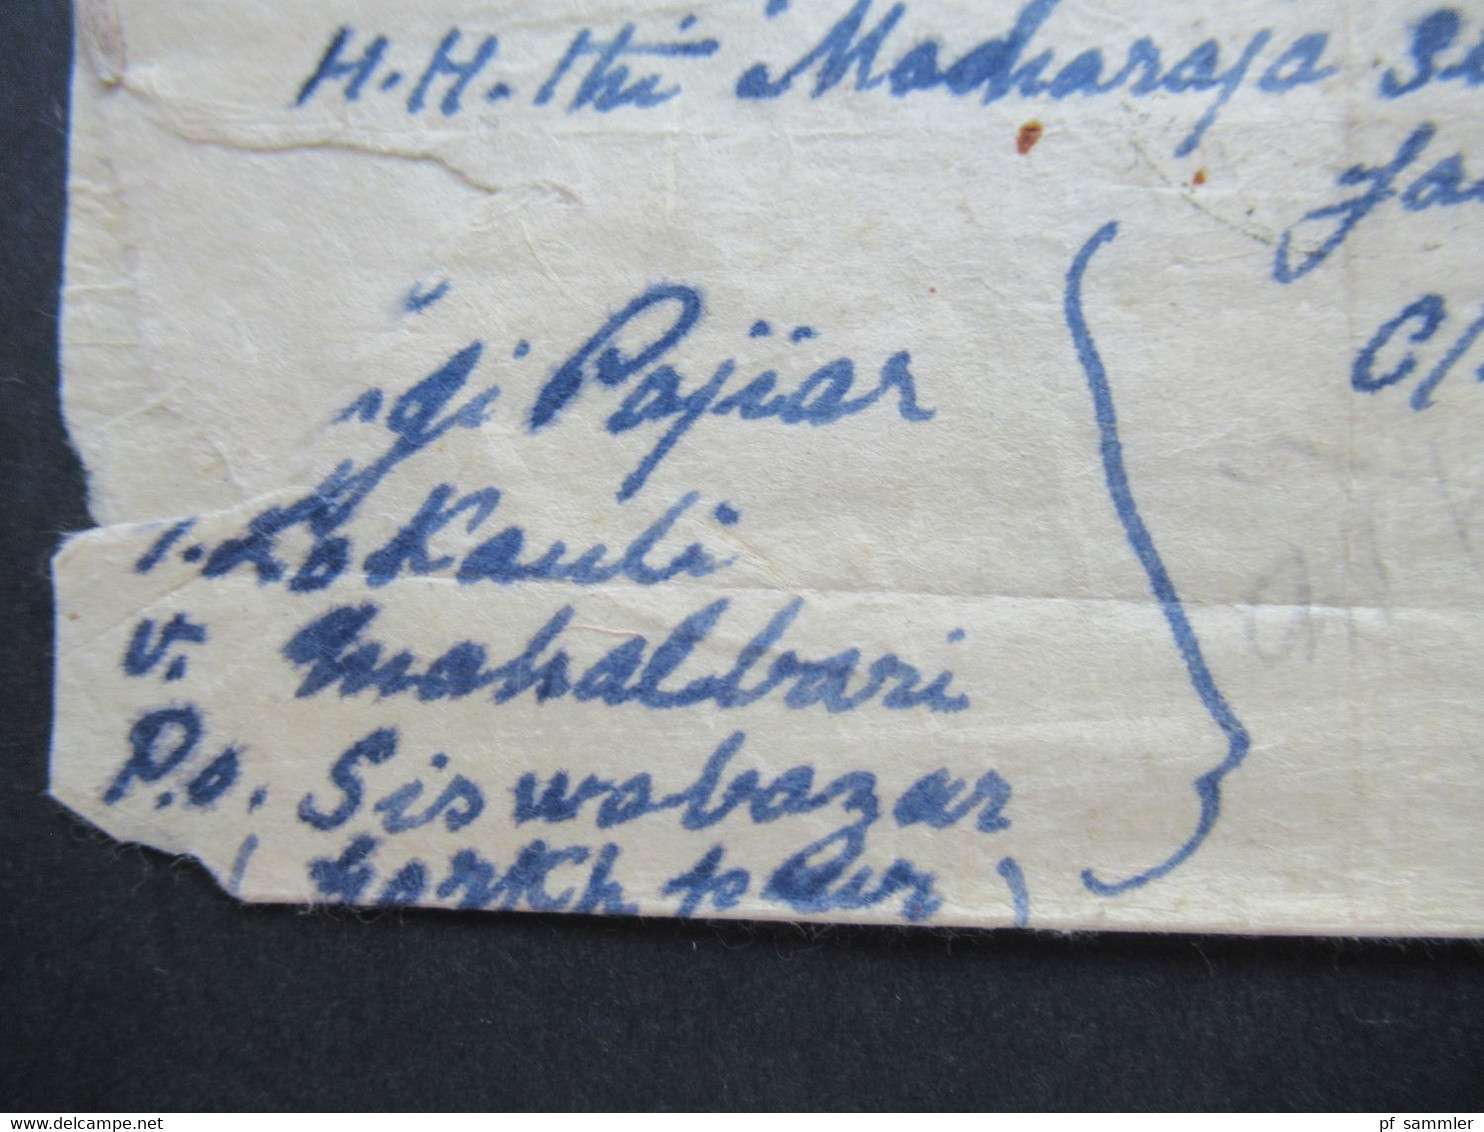 H.H. thi Maharaja
C/
gi Pajiar
Lokauli
v. Mahalbari
P.O. Siswabazar
(Gorkhpur)
www.delcampe.net
pf_sammler